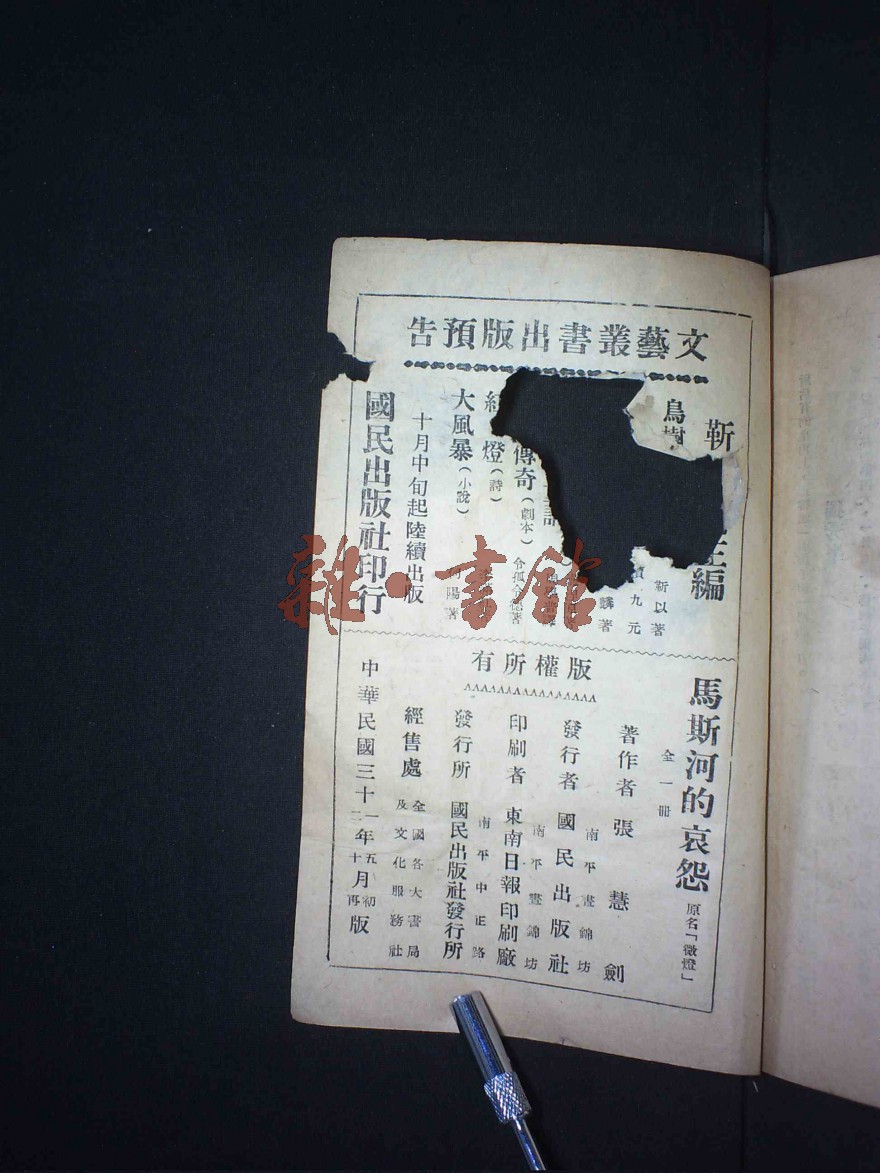 文藝叢書出版預告
靳 主編
鳥樹 靳以著
九元
麟著
傳奇(劇本) 令孤令德著
燈(詩)
大風暴(小說) 陽著
十月中旬起陸續出版
國民出版社印行
版權所有
馬斯河的哀怨 原名「微燈」
全一冊
著作者 張慧劍
發行者 國民出版社
南平晝錦坊
印刷者 東南日報印刷廠
南平晝錦坊
發行所 國民出版社發行所
南平中正路
經售處 全國各大書局
及文化服務社
中華民國三十一年五月初版
三十二年十月再版
雜·書館